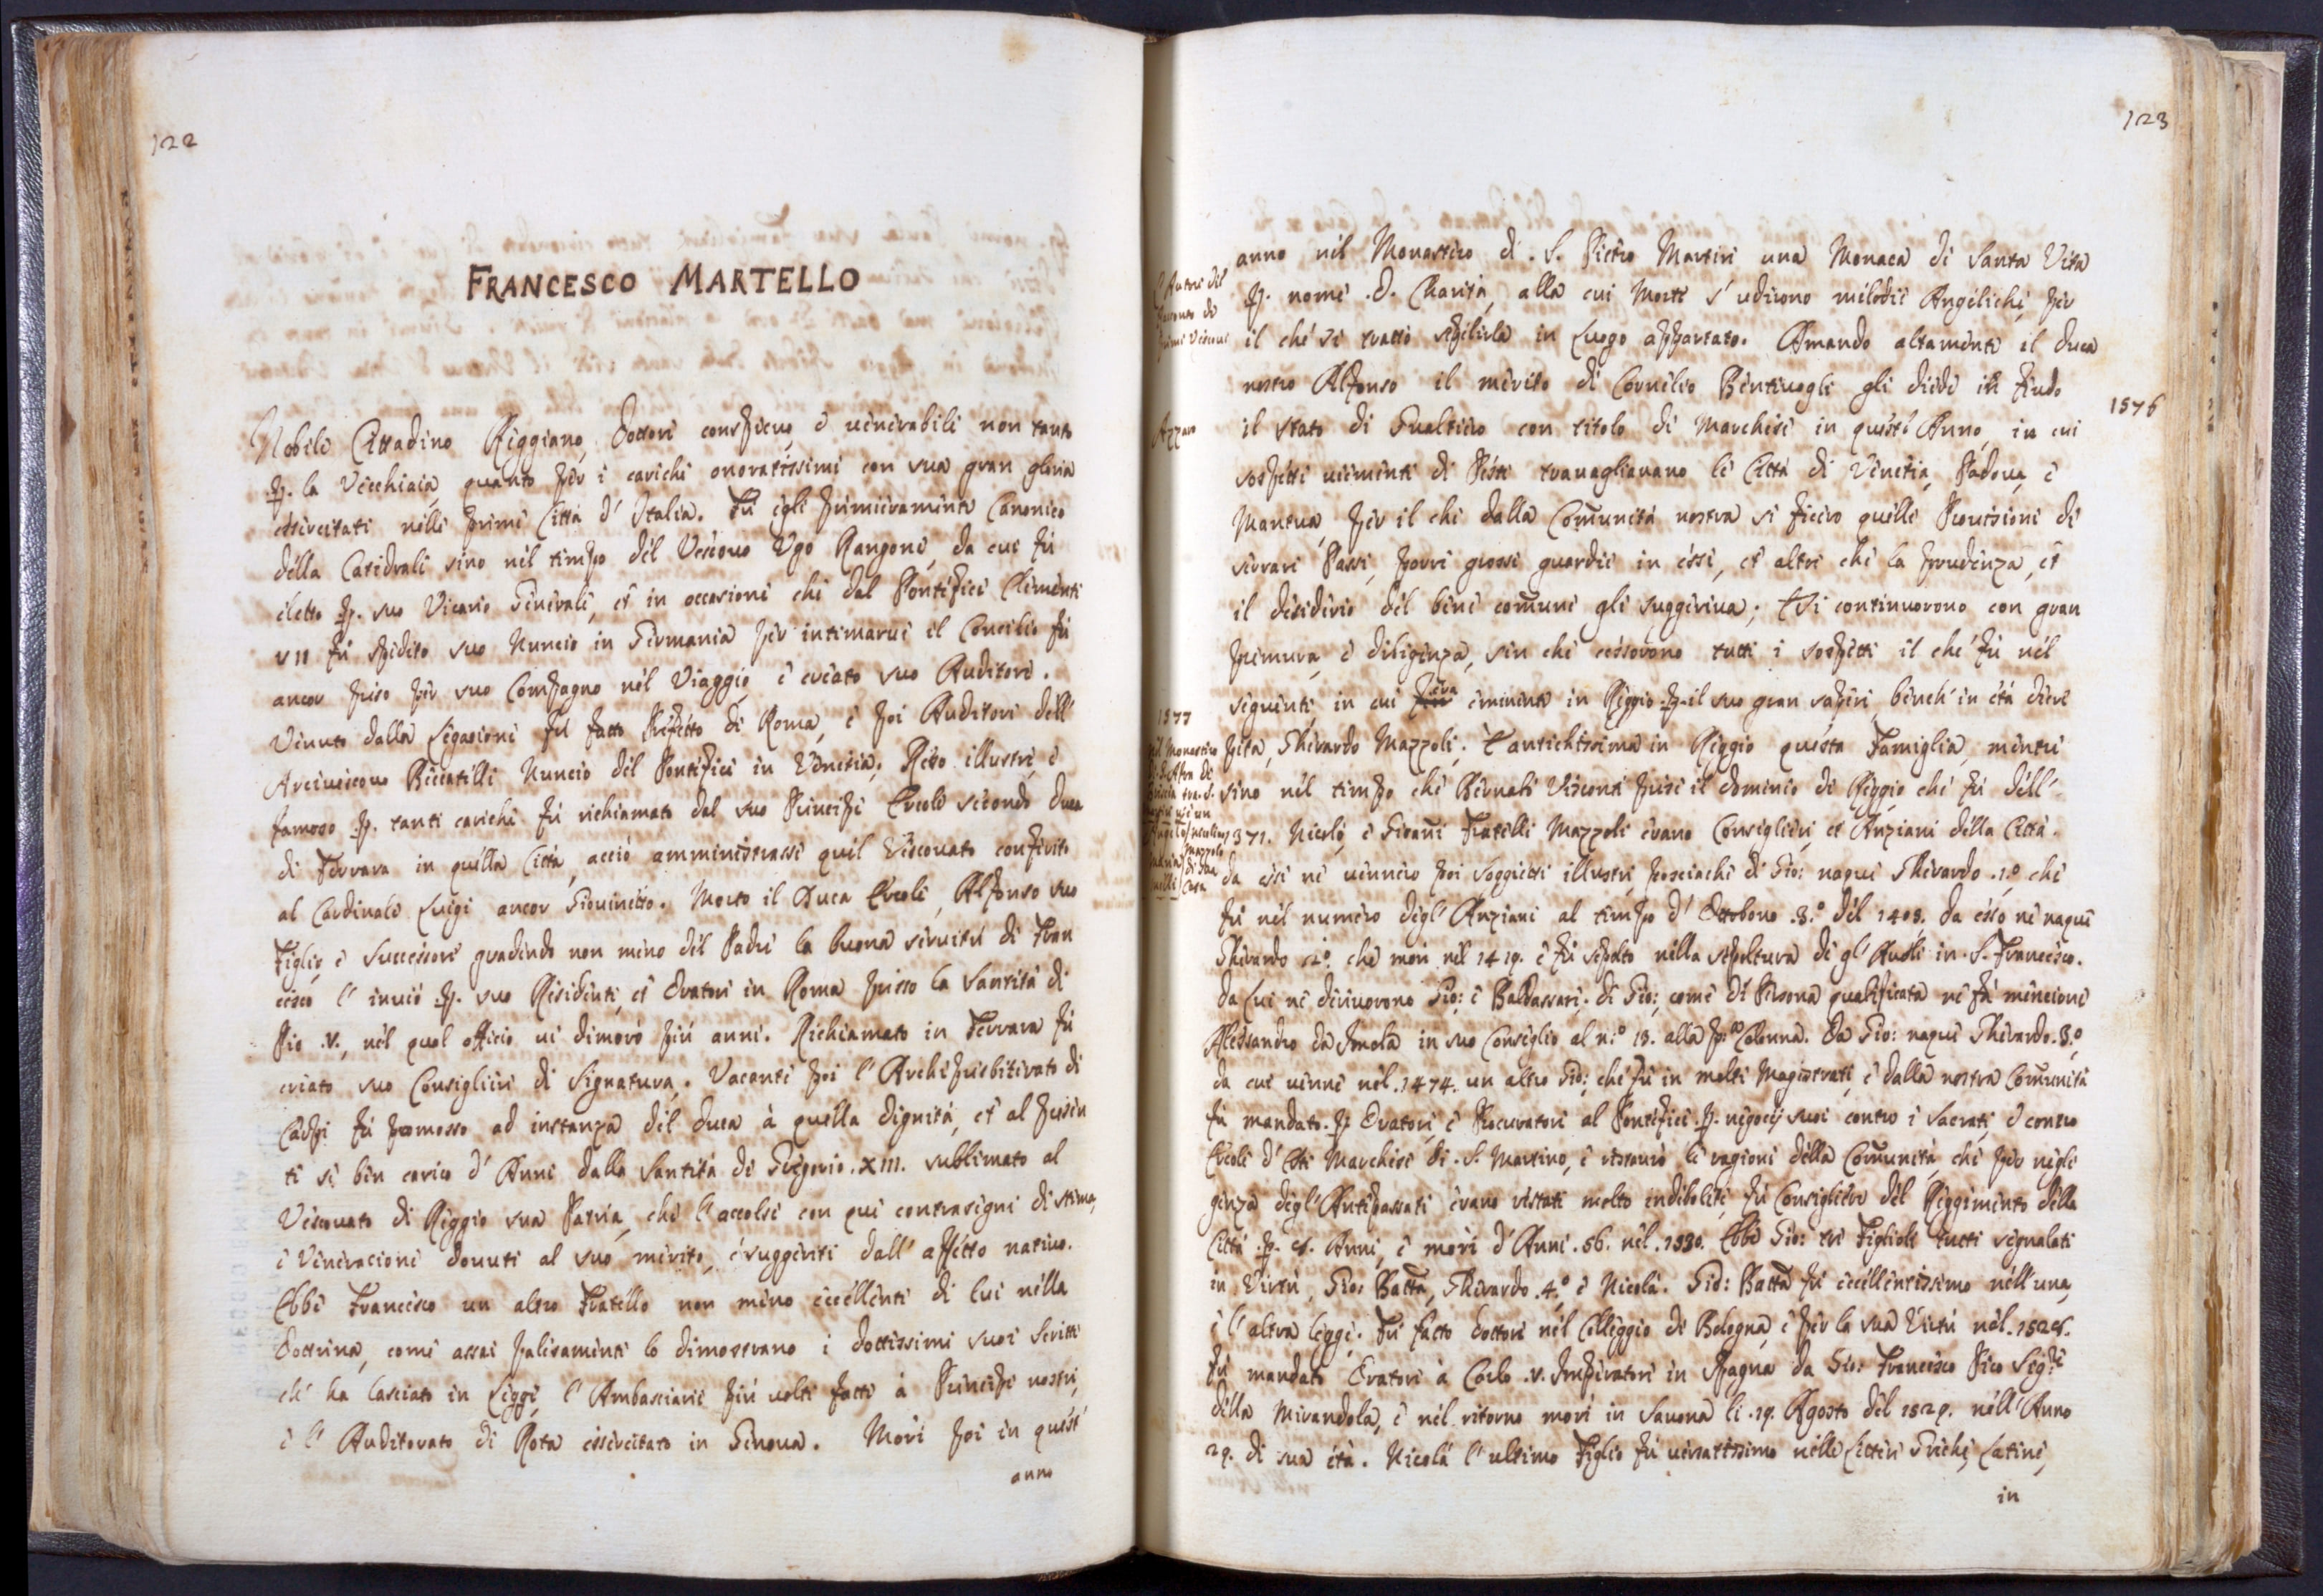 122
FRANCESCO MARTELLO
Nobile Cittadino Reggiano, Dottore conspicuo, e venerabile non tanto
p. la Vecchiaia, quanto per i carichi onoratissimi con sua gran gloria
essercitati nelle prime Città d' Italia. Fù egli primieramente Canonico
della Catedrale sino nel tempo del Vescovo Ugo Rangone, da cui fù
eletto p. suo Vicario Generale, et in occasione che dal Pontefice Clemente
VII fù spedito suo Nuncio in Germania per intimarvi il Concilio fù
ancor preso per suo Compagno nel Viaggio, e creato suo Auditore.
Venuto dalla Legazione fù fatto Prefetto di Roma, e poi Auditore dell'
Arcivescovo Beccatelli Nuncio del Pontefice in Venetia; Reso illustre, e
famoso p. tanti carichi fù richiamato dal suo Principe Ercole secondo Duca
di Ferrara in quella Città, acciò amministrasse quel Vescovato conferito
al Cardinale Luigi ancor Giovinetto. Morto il Duca Ercole, Alfonso suo
Figlio, e Successore gradendo non meno del Padre la buona servitù di Fran
cesco l' inviò p. suo Residente, et Oratore in Roma presso la Santità di
Pio .V., nel qual officio vi dimorò più anni. Richiamato in Ferrara fù
creato suo Consigliere di Signatura. Vacante poi l' Archipresbiterato di
Carpi fù promosso ad instanza del Duca à quella dignità, et al presen
te se ben carico d' Anni dalla Santità di Gregorio .XIII. sublimato al
Vescovato di Reggio sua Patria, che l' accolse con que contrasegni di stima,
e Venerazione dovuti al suo merito, e suggeriti dall' affetto nativo.
Ebbe Francesco un altro Fratello non meno eccellente di lui nella
Dottrina, come assai palesamente lo dimostrano i dottissimi suoi Scritti
ch' ha lasciato in Legge, l' Ambasciarie più volte fatte à Principi nostri,
e l' Auditorato di Rota essercitato in Genova. Morì poi in quest'
anno
123
anno nel Monastero di .S. Pietro Martire una Monaca di Santa Vita
p. nome .D. Charità, alla cui Morte s' udirono melodie Angeliche, per
il che si trattò sepelirla in Luogo appartato. Amando altamente il Duca
nostro Alfonso il merito di Cornelio Bentivogli gli diede in feudo
Azzaro
il Stato di Gualtiero con titolo di Marchese in quest' Anno, in cui
1576
sospetti veementi di Peste travagliavano le Città di Venetia, Padova, e
Mantua, per il che dalla Comunità nostra si fecero quelle Provisioni di
serrare Passi, porre grosse guardie in essi, et altre che la prudenza, et
il desiderio del bene comune gli suggeriva; E si continuorono con gran
premura, e diligenza, sin che cessorono tutti i sospetti il che fù nel
seguente, in cui era eminente in Reggio p. il suo gran sapere, bench' in età decre
1577
pita, Gherardo Mazzoli. È antichissima in Reggio questa Famiglia, mentre
sino nel tempo che Bernabò Visconti prese il dominio di Reggio che fù dell'
1371. Nicolò, e Giovani Fratelli Mazzoli erano Consiglieri, et Anziani della Città.
da essi ne vennero poi Soggietti illustri, posciachè di Gio: nacque Gherardo .1.º che
fù nel numero degl' Anziani al tempo d' Ottobono .3.º del 1408. da esso ne nacque
Gherardo .2.º che morì nel 1419. e fù sepolto nella sepoltura di gl' Avoli in .S. Francesco.
da Lui ne derivorono Gio: e Baldassare. di Gio: come di Persona qualificata ne fà mencione
Alessandro da Imola in suo Consiglio al n.º 13. alla p. Colonna. Da Gio: nacque Gherardo .3.º
da cui venne nel .1474. un altro Gio: che fù in molti Magistrati, e dalla nostra Comunità
fù mandato p. Oratore, e Procuratore al Pontefice p. negocij suoi contro i Sacrati, e contro
Ercole d' Este Marchese di .S. Martino, e ristaurò le ragioni della Comunità, che per negli
genza degl' Antipassati erano restati molto indebolite, fù Consigliere del Reggimento della
Città p. Anni, e morì d' Anni .56. nel .1530. Ebbe Gio: tre Figlioli tutti segnalati
in Virtù, Gio: Batta, Gherardo .4.º e Nicolà. Gio: Batta fù eccellentissimo nell' una,
e l' altra legge. Fù fatto Dottore nel Colleggio di Bologna, e per la sua Virtù nel
fù mandato Oratore à Carlo .V. Imperatore in Spagna da Gio: Francesco Pico Sig.re
della Mirandola, e nel ritorno morì in Savona li .19. Agosto del 1529. nell' Anno
29. di sua età. Nicolà l' ultimo Figlio fù versatissimo nelle Lettere Greche, Latine,
in